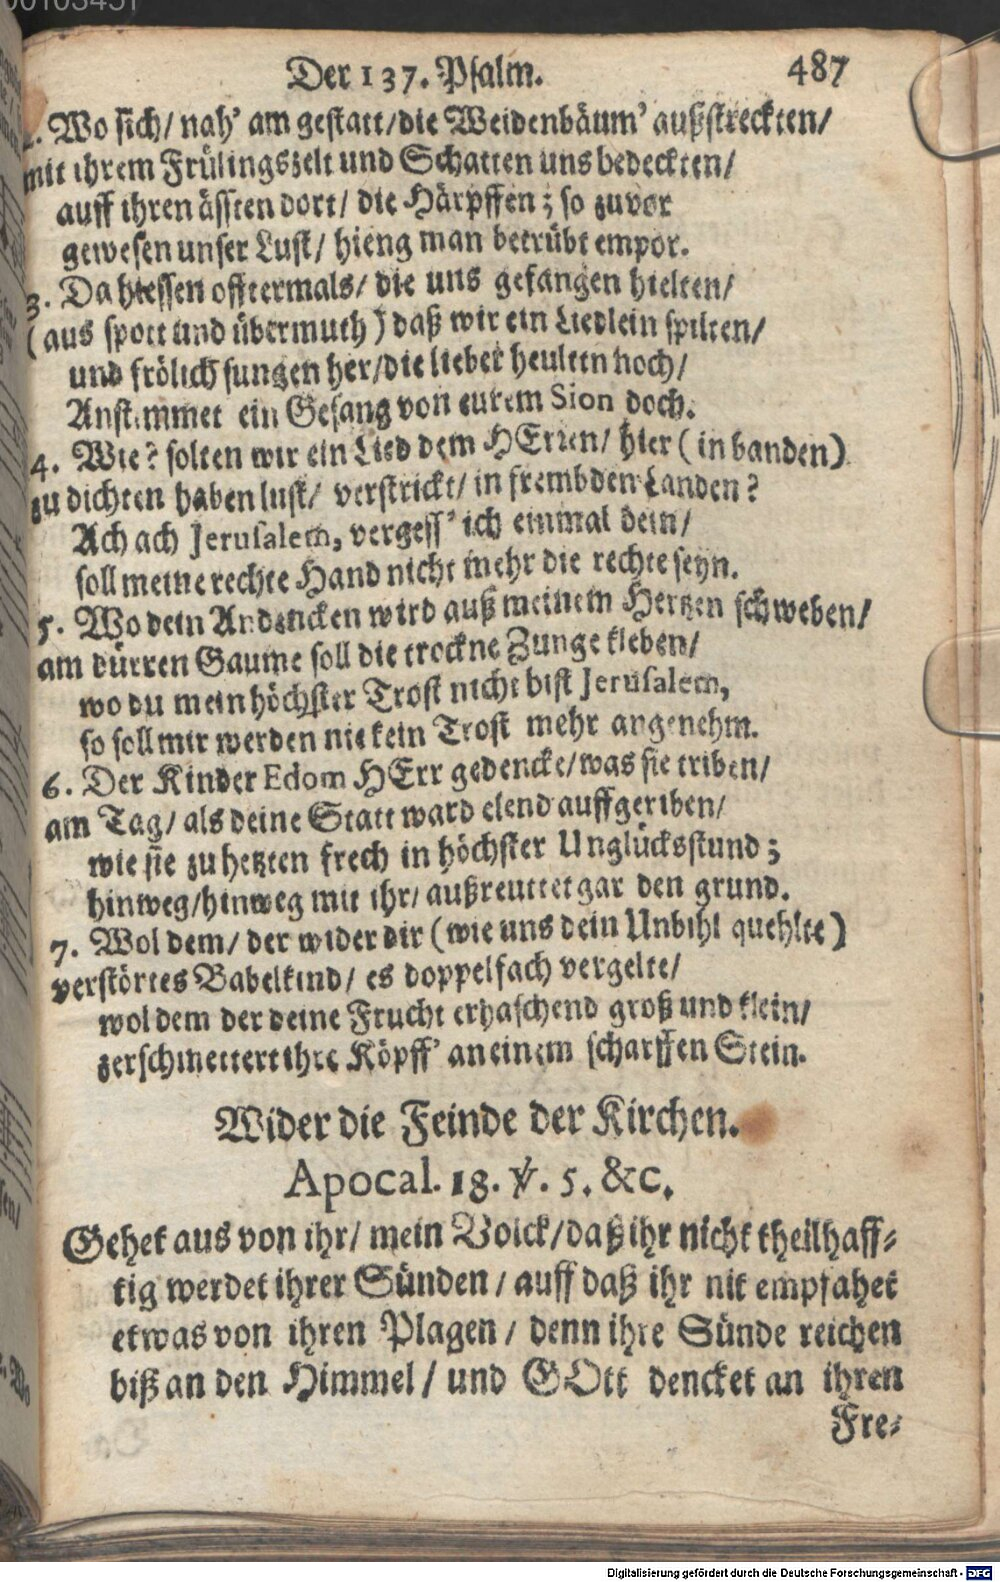 00103451
Der 137. Psalm. 487
2. Wo sich/ nah' am gestatt/die Weidenbäum' außstreckten/
mit ihrem Frülingszelt und Schatten uns bedeckten/
auff ihren ässten dort/ die Härpffen; so zuvor
gewesen unser Lust/ hieng man betrübt empor.
3. Da hiessen offtermals/ die uns gefangen hielten/
(aus spott und übermuth) daß wir ein Liedlein spilten/
und frölich sungen her/die lieber heulten noch/
Anstimmet ein Gesang von eurem Sion doch.
4. Wie? solten wir ein Lied dem HErren/ hier (in banden)
zu dichten haben lust/ verstrickt/ in frembden Landen?
Ach ach Jerusalem, vergess' ich einmal dein/
soll meine rechte Hand nicht mehr die rechte seyn.
5. Wo dein Andencken wird auß meinem Hertzen schweben/
am dürren Gaume soll die trockne Zunge kleben/
wo du mein höchster Trost nicht bist Jerusalem,
so soll mir werden nie kein Trost mehr angenehm.
6. Der Kinder Edom HErr gedencke/was sie triben/
am Tag/ als deine Statt ward elend auffgeriben/
wie sie zu hetzten frech in höchster Unglücksstund;
hinweg/hinweg mit ihr/ außreuttet gar den grund.
7. Wol dem/ der wider dir (wie uns dein Unbihl quehlte)
verstörtes Babelkind/ es doppelfach vergelte/
wol dem der deine Frucht erhaschend groß und klein/
zerschmettert ihre Köpff' an einem scharffen Stein.
Wider die Feinde der Kirchen.
Apocal. 18. ℣. 5. &c.
Gehet aus von ihr/ mein Volck/daß ihr nicht theilhaff-
tig werdet ihrer Sünden/ auff daß ihr nit empfahet
etwas von ihren Plagen/ denn ihre Sünde reichen
biß an den Himmel/ und GOtt dencket an ihren
Fre-
Digitalisierung gefördert durch die Deutsche Forschungsgemeinschaft - DFG